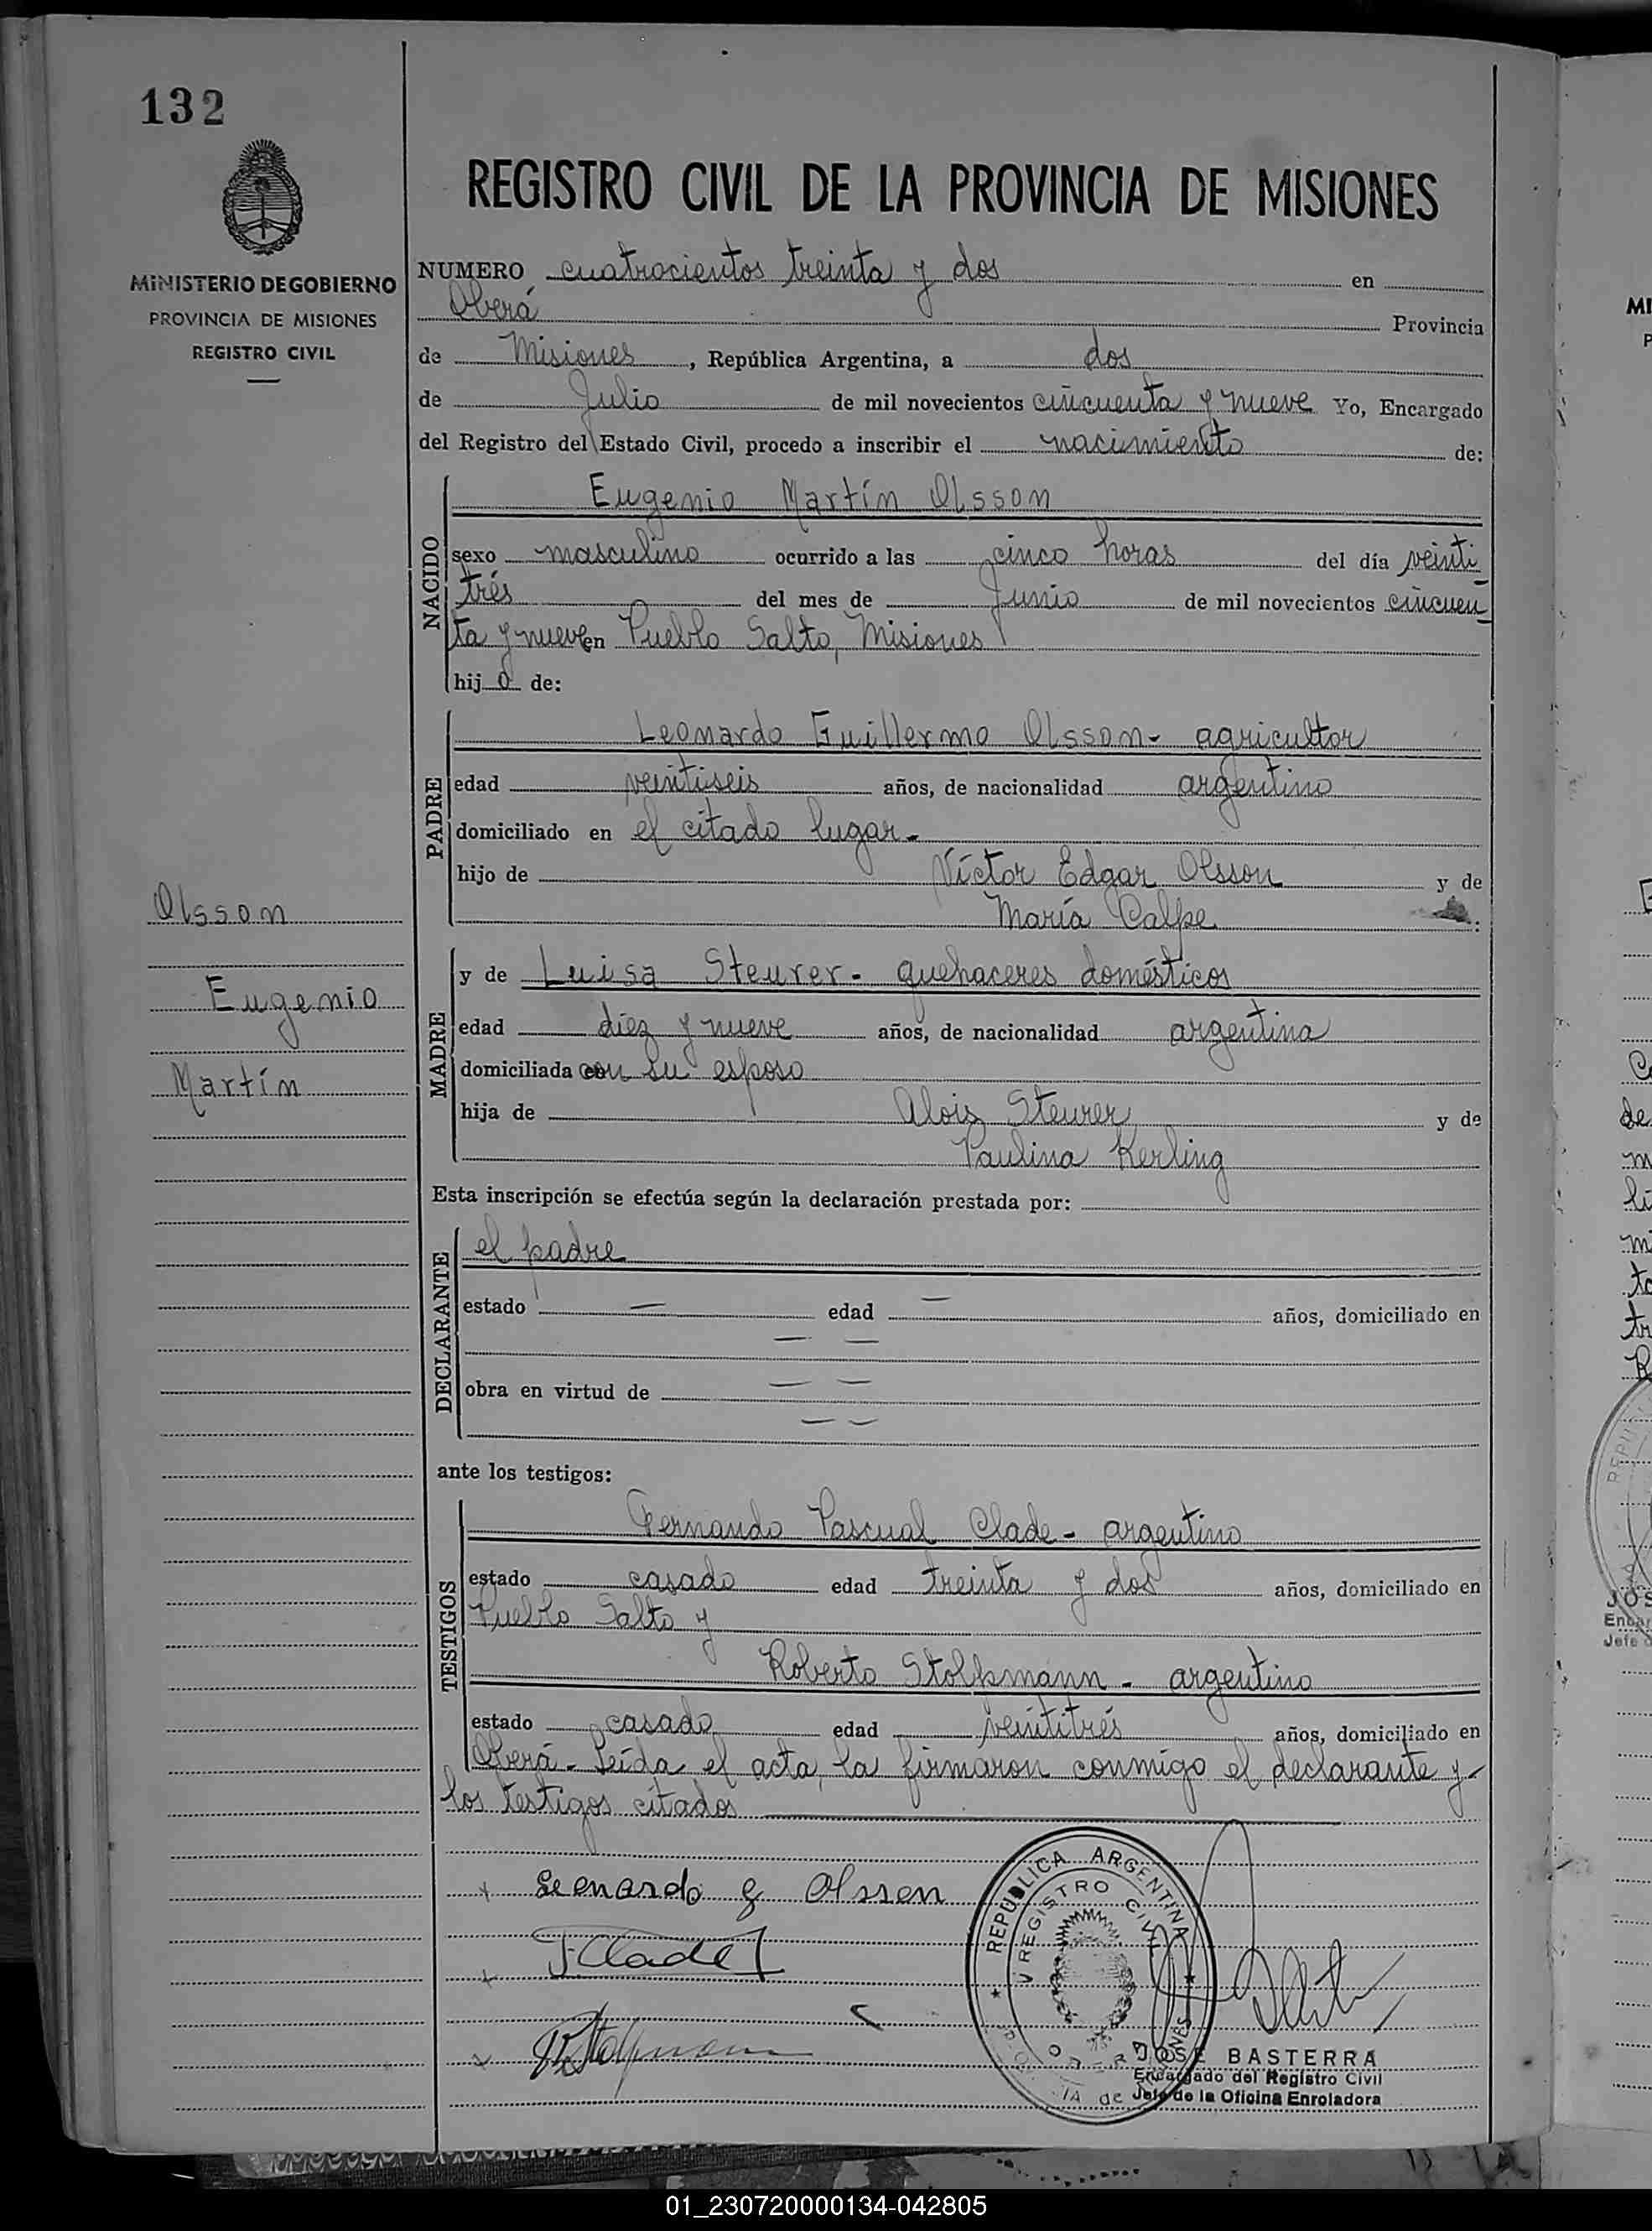 132
MINISTERIO DE GOBIERNO
PROVINCIA DE MISIONES
REGISTRO CIVIL
REGISTRO CIVIL DE LA PROVINCIA DE MISIONES
NUMERO cuatrocientos treinta y dos en
Oberá Provincia
de Misiones, República Argentina, a dos
de Julio de mil novecientos cincuenta y nueve Yo, Encargado
del Registro del Estado Civil, procedo a inscribir el nacimiento de:
NACIDO
Eugenio Martín Olsson
sexo masculino ocurrido a las cinco horas del día veinti
trés del mes de Junio de mil novecientos cincuen
ta y nueve en Pueblo Salto, Misiones
hijo de:
PADRE
Leonardo Guillermo Olsson- agricultor
edad veintiseis años, de nacionalidad argentino
domiciliado en el citado lugar-
hijo de Víctor Edgar Olsson y de
María Calpe
Olsson
Eugenio
Martín
MADRE
y de Luisa Steurer- quehaceres domésticos
edad diez y nueve años, de nacionalidad argentina
domiciliada con su esposo
hija de Alois Steurer y de
Paulina Kerling
Esta inscripción se efectúa según la declaración prestada por:
DECLARANTE
el padre
estado — edad — años, domiciliado en
— —
obra en virtud de — —
— —
ante los testigos:
TESTIGOS
Fernando Pascual Clade- argentino
estado casado edad treinta y dos años, domiciliado en
Pueblo Salto y
Roberto Stolpmann- argentino
estado casado edad veintitrés años, domiciliado en
Oberá- Leída el acta, la firmaron conmigo el declarante y-
los testigos citados
Leonardo G Olsson
F Clade
R Stolpmann
REPUBLICA ARGENTINA
REGISTRO CIVIL
JOSE BASTERRA
Encargado del Registro Civil
Jefe de la Oficina Enroladora
01_230720000134-042805